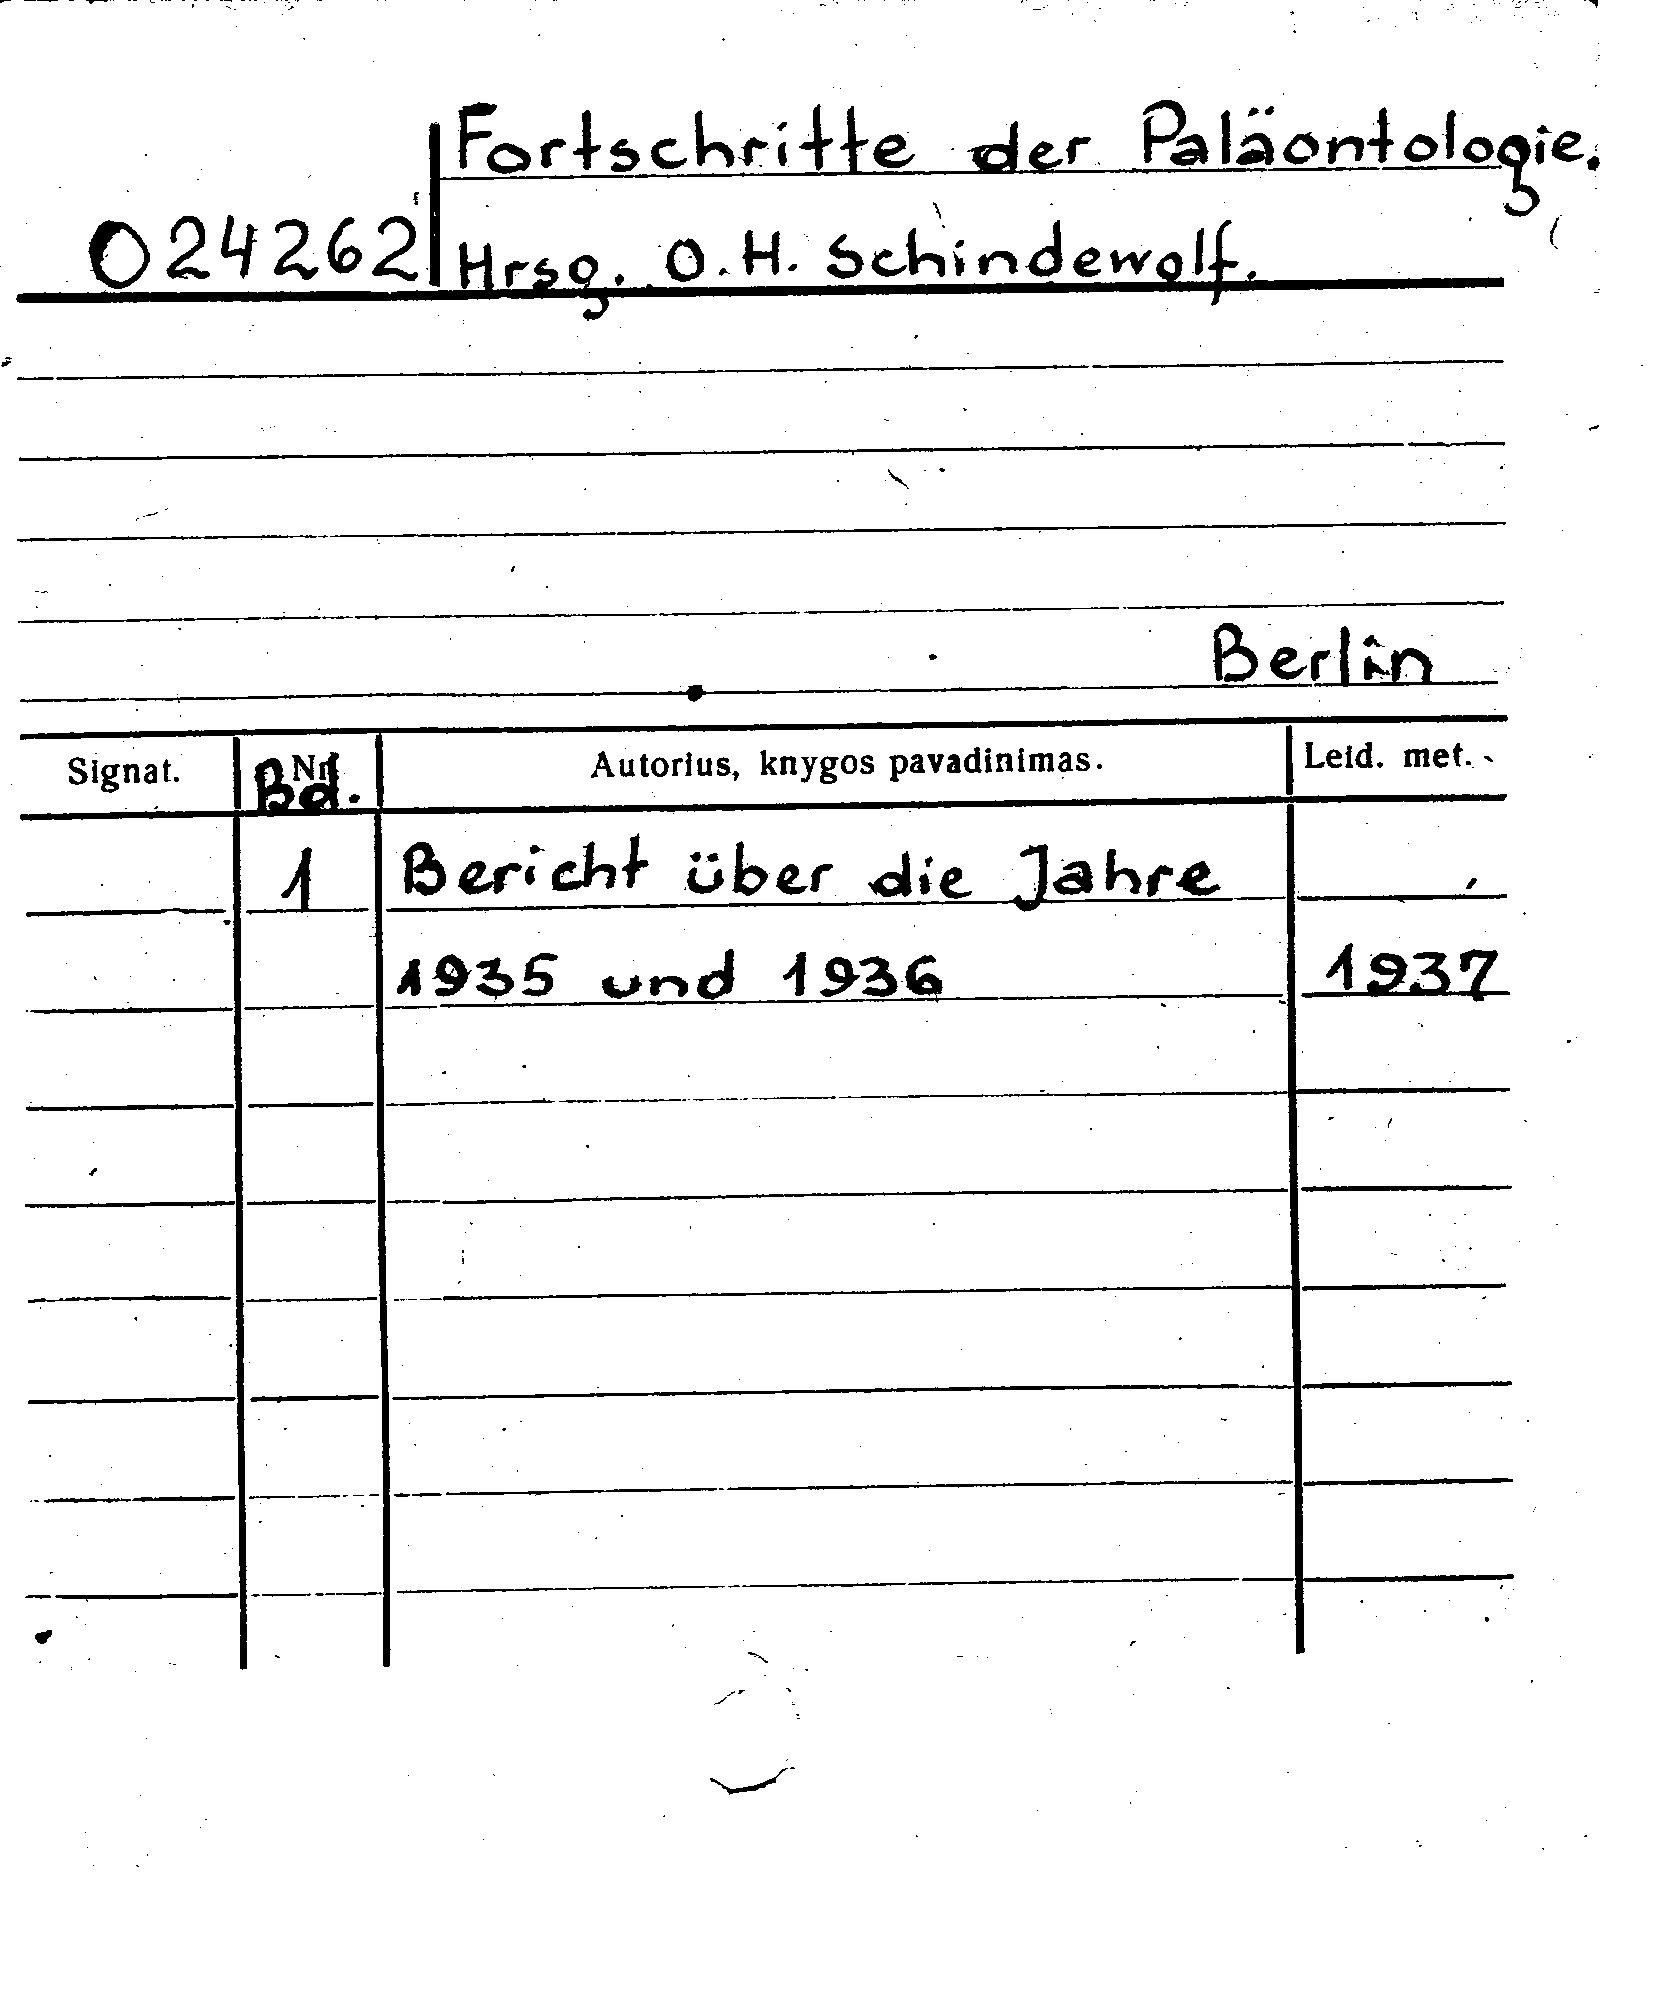 Fortschritte der Paläontologie.
024262 Hrsg. O. H. Schindewolf.
Berlin
Signat. Nr. Bd. Autorius, knygos pavadinimas. Leid. met.
1 Bericht über die Jahre
1935 und 1936 1937